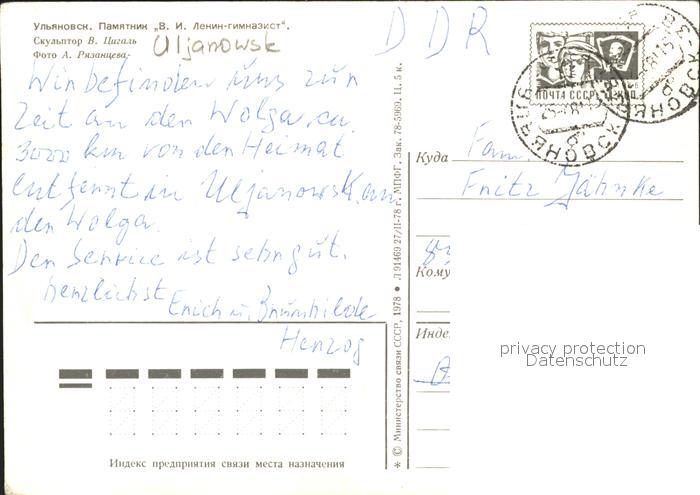 Ульяновск. Памятник „В. И. Ленин-гимназист“.
Скульптор В. Цигаль
Фото А. Рязанцева
Uljanowsk
DDR
Wir befinden uns zur
Zeit an der Wolga ca.
3000 km von der Heimat
entfernt in Uljanowsk an
der Wolga.
Der Service ist sehr gut.
herzlichst
Erich u. Brunhilde
Herzog
© Министерство связи СССР, 1978 • Л 91469 27/II-78 г. МПФГ. Зак. 78-5969. Ц. 5 к.
ПОЧТА СССР
Куда
Fam.
Fritz Jähnke
Кому
Инде
privacy protection
Datenschutz
Индекс предприятия связи места назначения